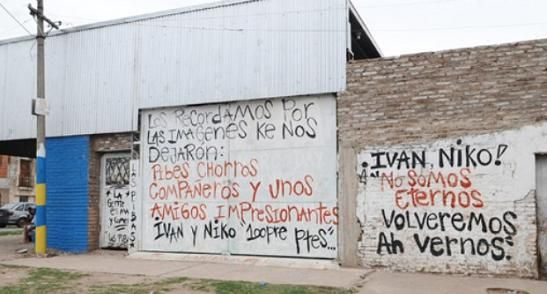 LOS RECORDAMOS POR
LAS IMAGENES KE NOS
DEJARON:
PIBES CHORROS
COMPAÑEROS Y UNOS
AMIGOS IMPRESIONANTES
IVAN Y NIKO "100PRE PTES..."
¡IVAN, NIKO!
NO SOMOS
ETERNOS
VOLVEREMOS
AH VERNOS."
LA
GENTE